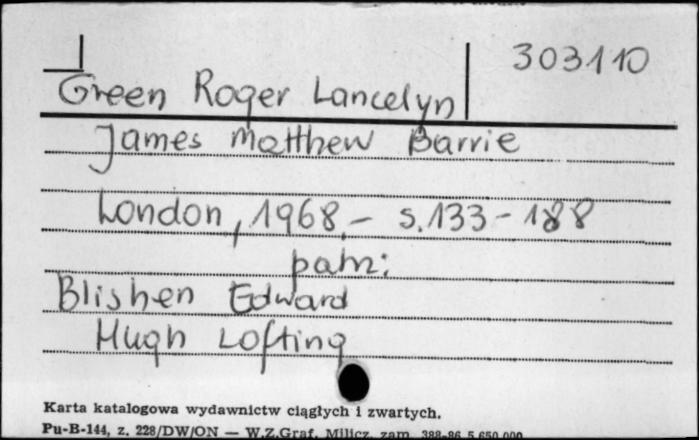 303110
Green Roger Lancelyn
James Matthew Barrie
London, 1968, - s. 133 - 188
patrz:
Blishen Edward
Hugh Lofting
Karta katalogowa wydawnictw ciągłych i zwartych.
Pu-B-144, z. 228/DW/ON — W.Z.Graf. Milicz, zam. 388-86 5.650.000